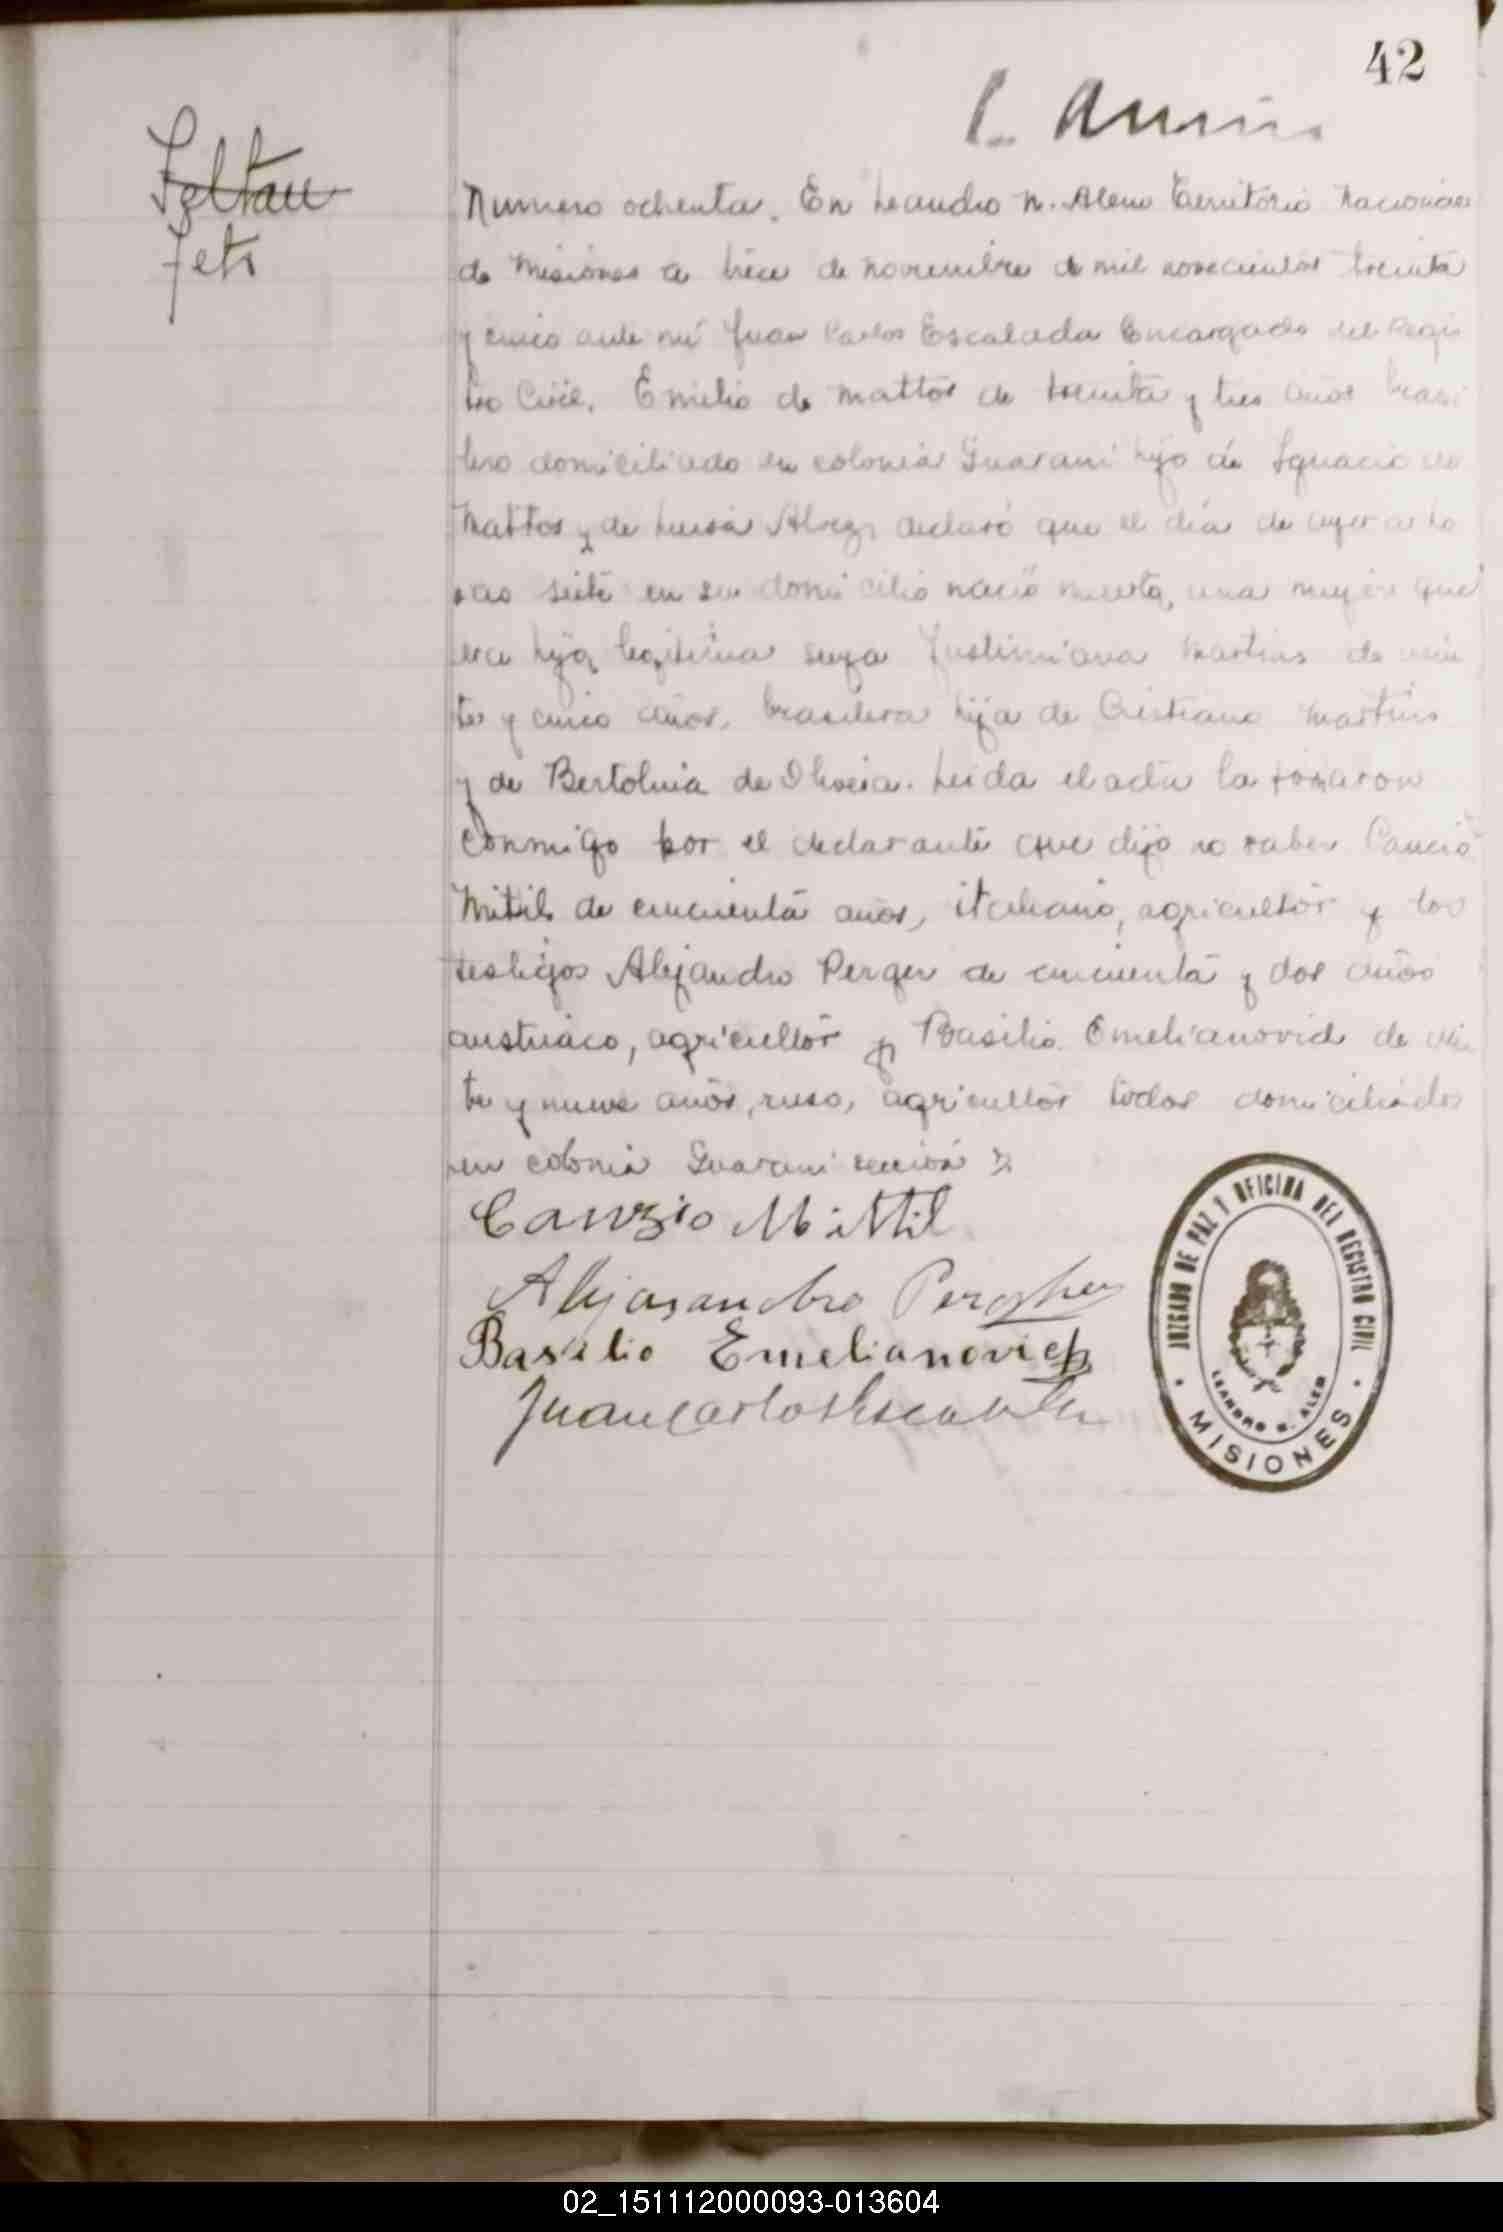 42
Feto
Numero ochenta. En Leandro N. Alem Territorio Nacional
de Misiones a trece de noviembre de mil novecientos treinta
y cinco ante mi Juan Carlos Escalada Encargado del Regis
tro Civil. Emilio de Mattos de treinta y tres años brasi
lero domiciliado en colonia Guarani hijo de Ignacio de
Mattos y de Luisa Alvez, declaró que el dia de ayer a ho
ras siete en su domicilio nació muerta, una mujer que
era hija legitima suya Justimiana Martins de vein
te y cinco años, brasilera hija de Cristiano Martins
y de Bertolina de Oliveia. Leida el acta la firmaron
conmigo por el declarante que dijo no saber Cancio
Mitil de cincuenta años, italiano, agricultor y los
testigos Alejandro Perger de cincuenta y dos años
austriaco, agricultor y Basilio Emelianovich de vein
te y nueve años, ruso, agricultor todos domiciliados
en colonia Guarani sección
Canzio Mittil
Alejasandro Pergher
Basilio Emelianovich
Juan Carlos Escalada
JUZGADO DE PAZ Y OFICINA DEL REGISTRO CIVIL
LEANDRO N. ALEM
MISIONES
02_151112000093-013604